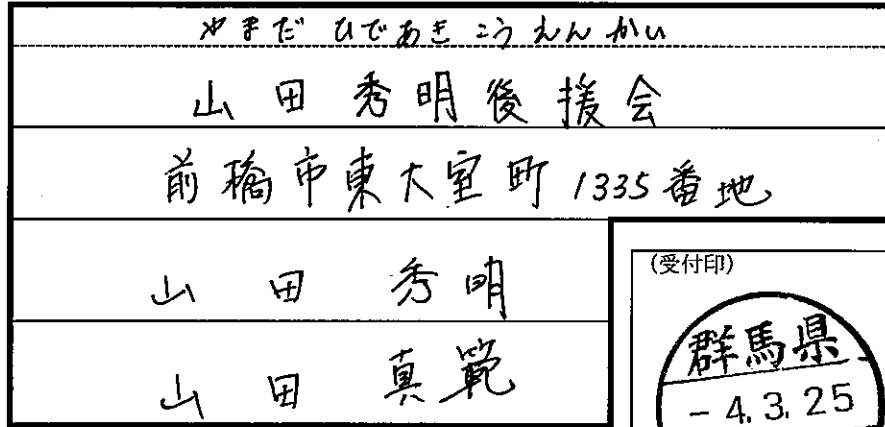 やまだ ひであき こうえんかい
山田秀明後援会
前橋市東大室町1335番地
山田 秀明
(受付印)
山田 真範
群馬県
-4.3.25